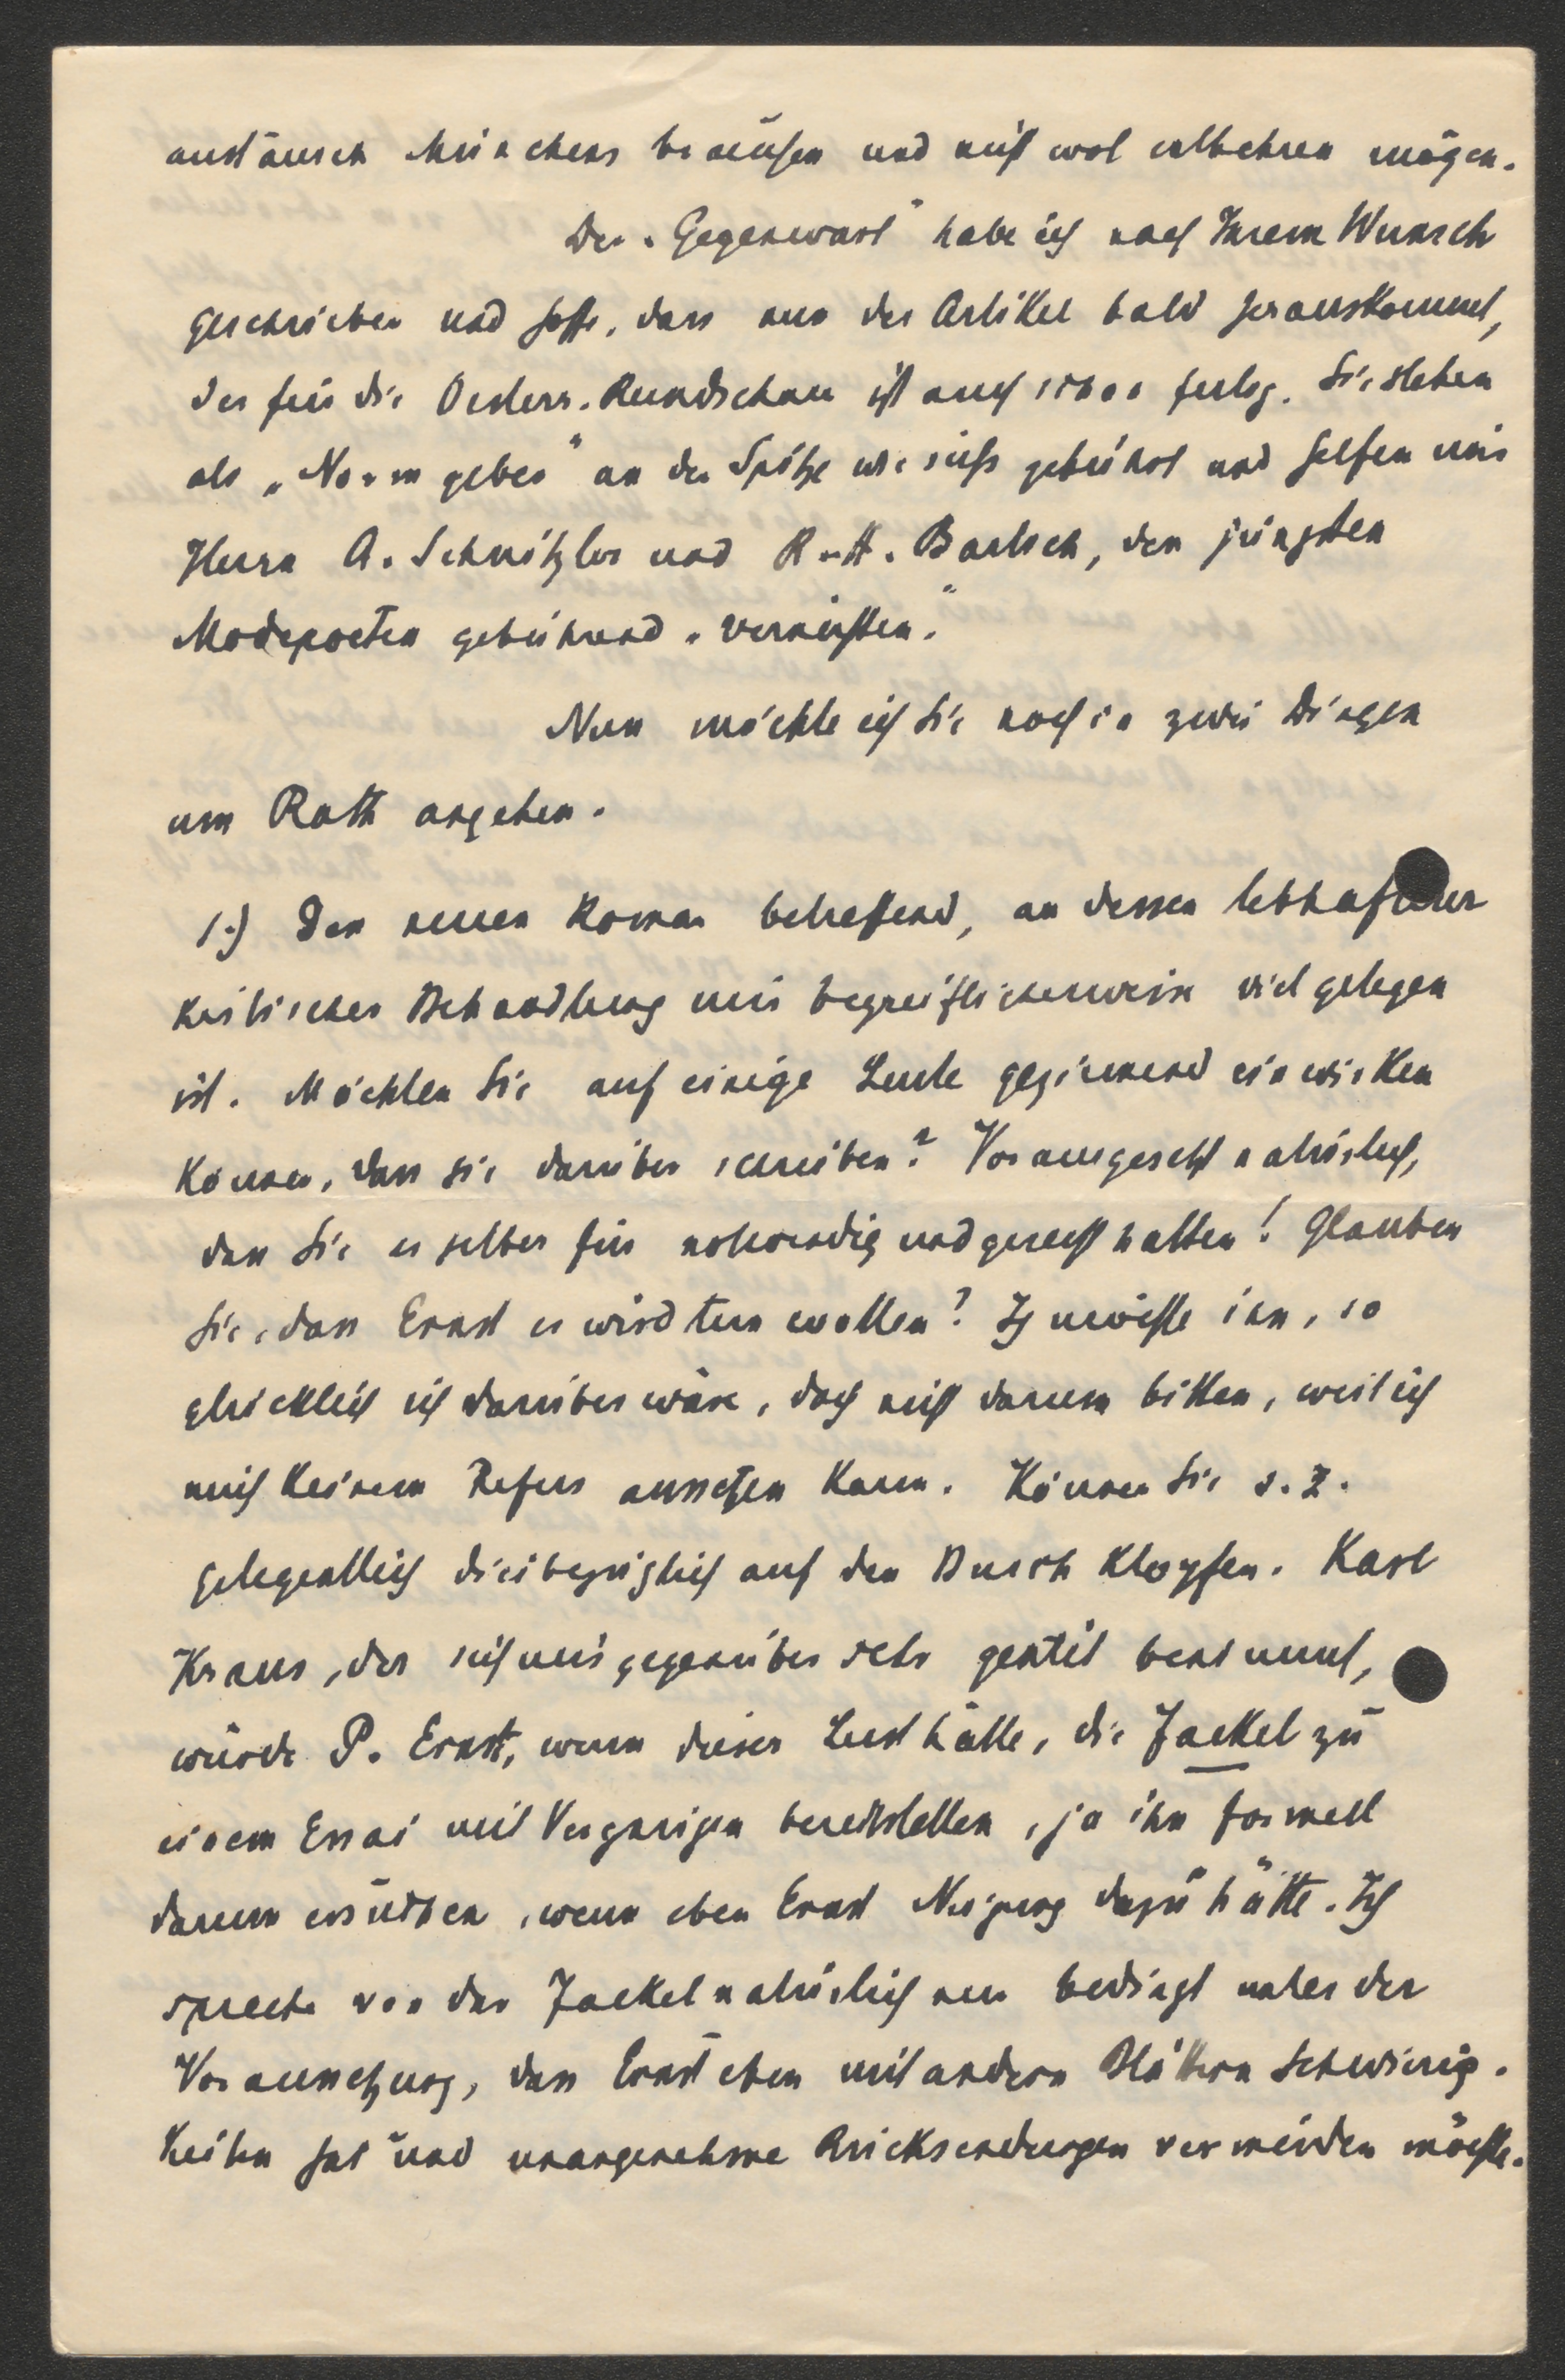 anstänsch Münchens brauchen und nicht wol entbehren mögen.
Der „Gegenwart" habe ich nach Ihrem Wunsch
geschrieben und hoffe, dass nun der Artikel bald herauskommt,
der für die Oesterr. Rundschau ist auch schon fertig. Sie stehen
als „Normgeber" an der Spitze wie sichs gebührt und helfen mir
Herrn A. Schnitzler und R. H. Bartsch, den jüngsten
Modepoeten gebührend „vernichten."
Nun möchte ich Sie noch in zwei Dingen
um Rath angehen.
1.) Den neuen Roman betreffend, an dessen lebhafter
kritischer Behandlung mir begreiflicherweise viel gelegen
ist. Möchten Sie auf einige Leute geziemend einwirken
können, dass sie darüber schreiben? Vorausgesetzt natürlich,
dass Sie es selber für notwendig und gerecht halten! Glauben
Sie, dass Ernst es wird tun wollen? Ich möchte ihn, so
glücklich ich darüber wäre, doch nicht darum bitten, weil ich
mich keinem Refus aussetzen kann. Können Sie s. Z.
gelegentlich diesbezüglich auf den Busch klopfen. Karl
Kraus, der sich mir gegenüber sehr gentil benimmt,
würde P. Ernst, wenn dieser Lust hätte, die Fackel zu
einem Essai mit Vergnügen bereitstellen, ja ihn formell
darum ersuchen, wenn eben Ernst Neigung dazu hätte. Ich
spreche von der Fackel natürlich nur bedingt unter der
Voraussetzung, dass Ernst eben mit andern Blättern Schwierig-
keiten hat und unangenehme Rücksendungen vermeiden möchte.